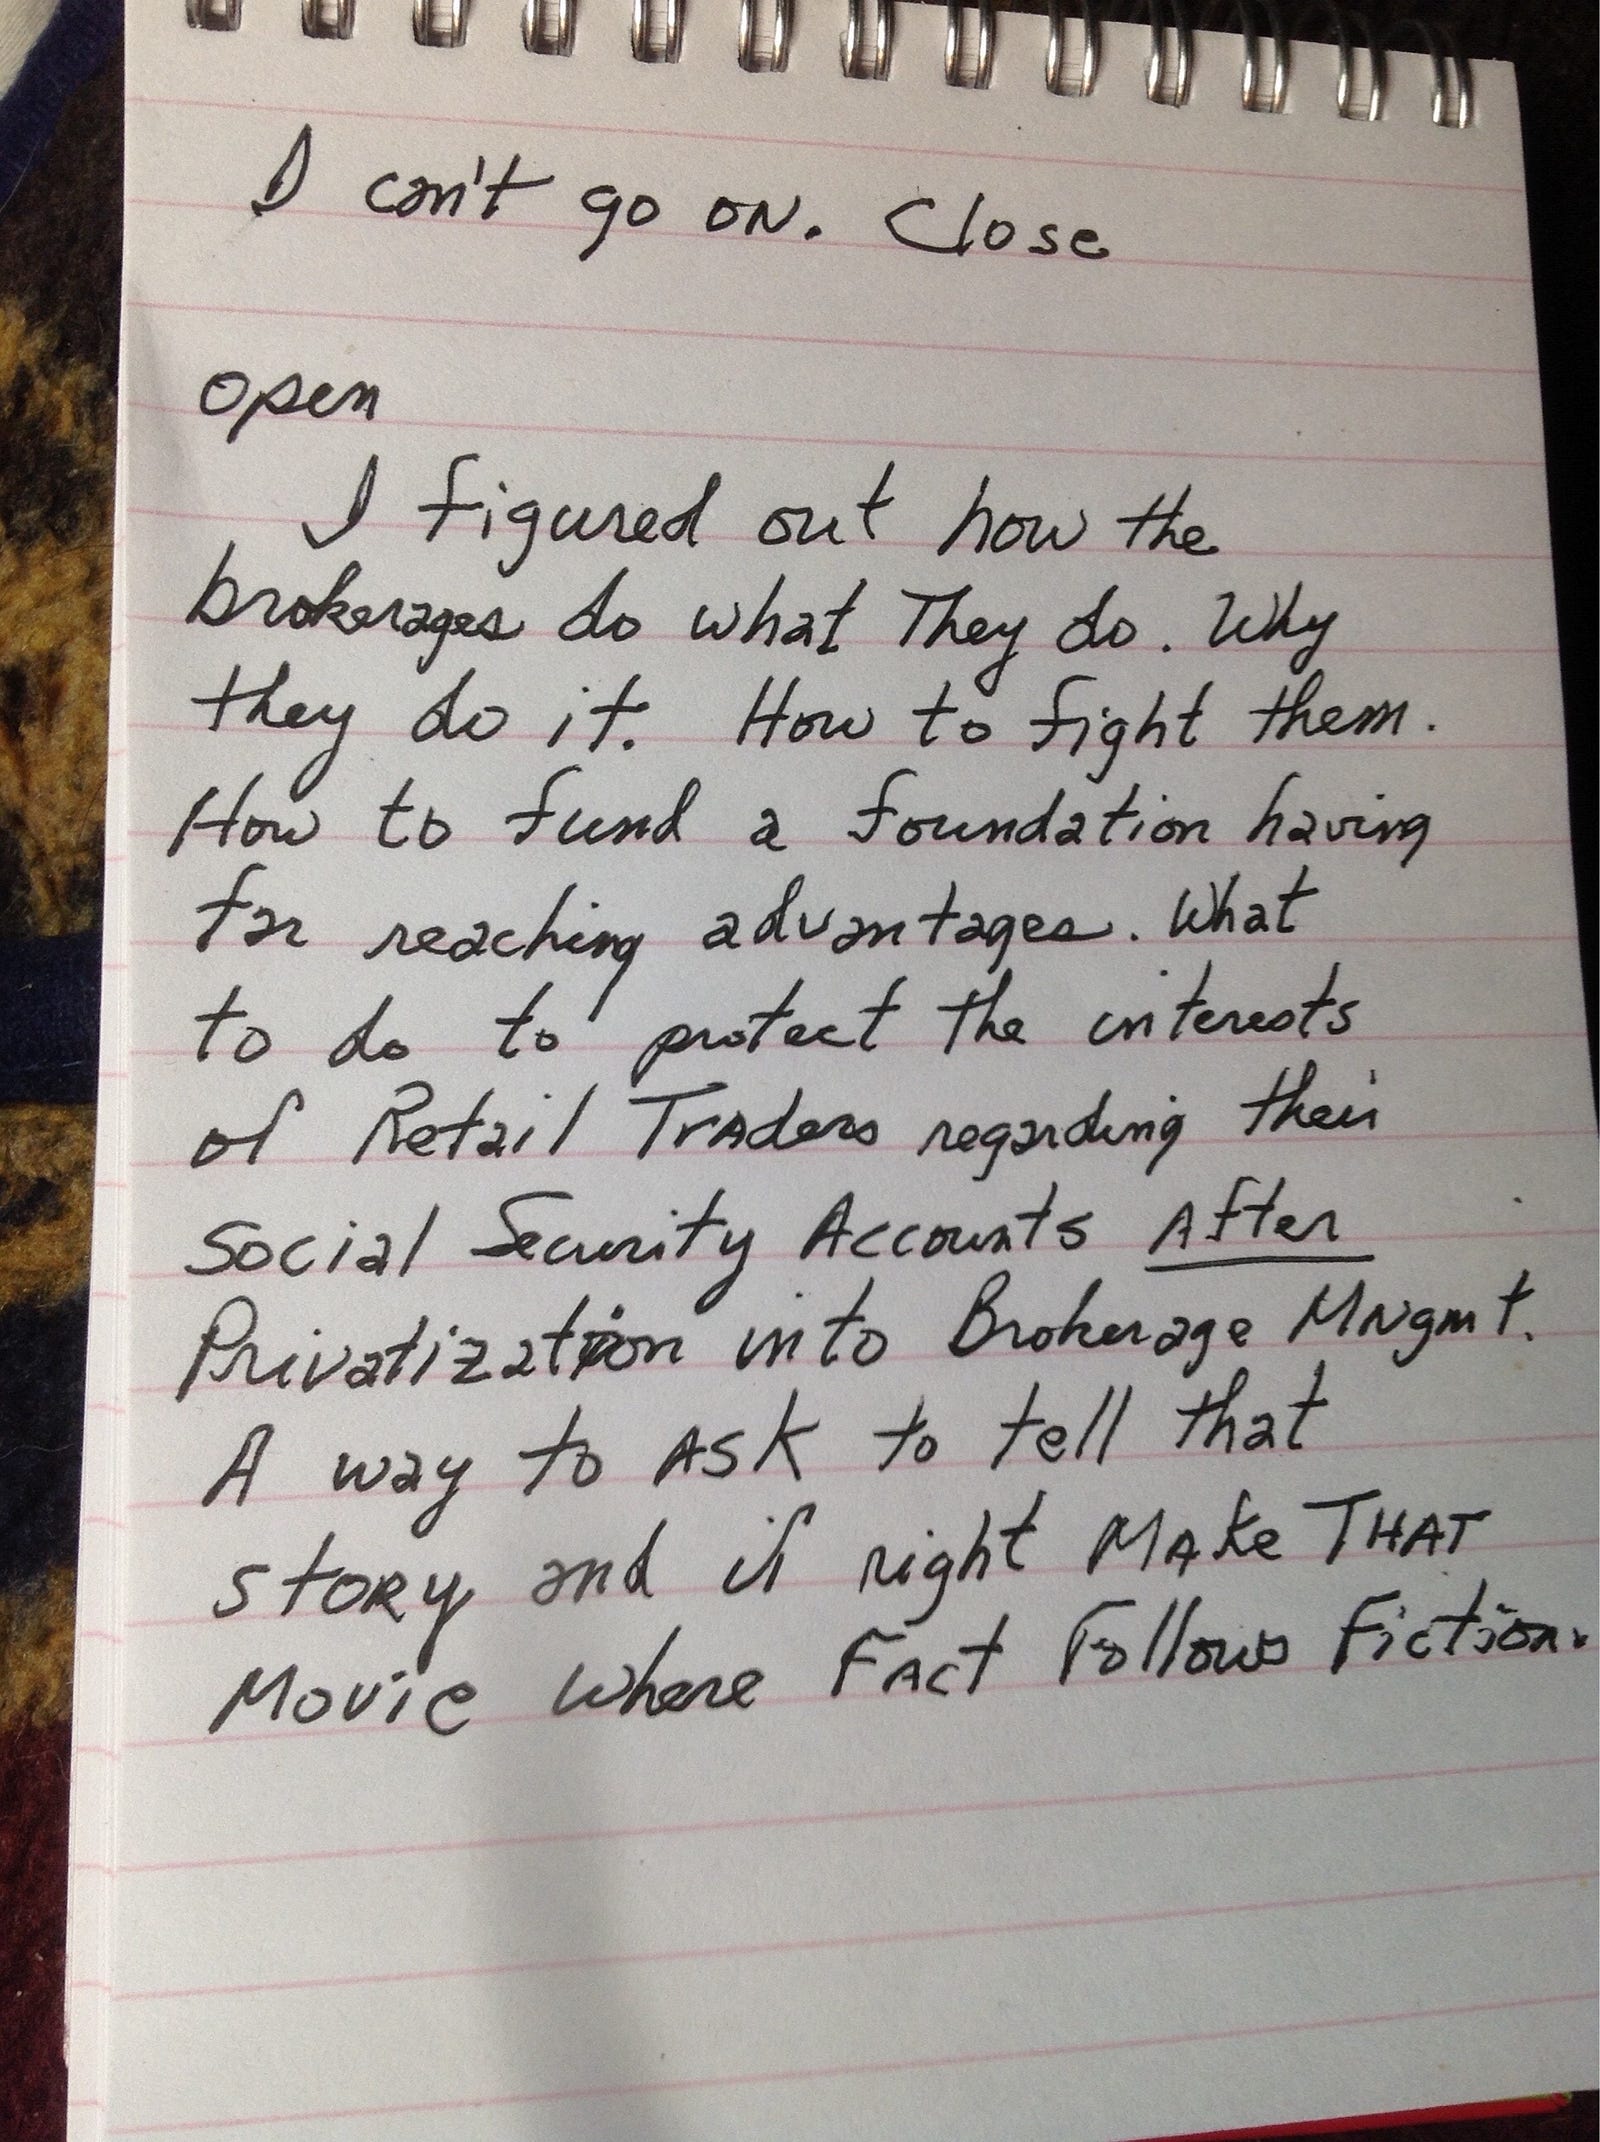 I can't go on. Close
open
I figured out how the
brokerages do what They do. Why
they do it. How to fight them.
How to fund a foundation having
far reaching advantages. What
to do to protect the interests
of Retail Traders regarding their
Social Security Accounts After
Privatization into Brokerage MNgmt.
A way to ASK to tell that
story and if right MAke THAT
Movie where FAct Follows Fiction.